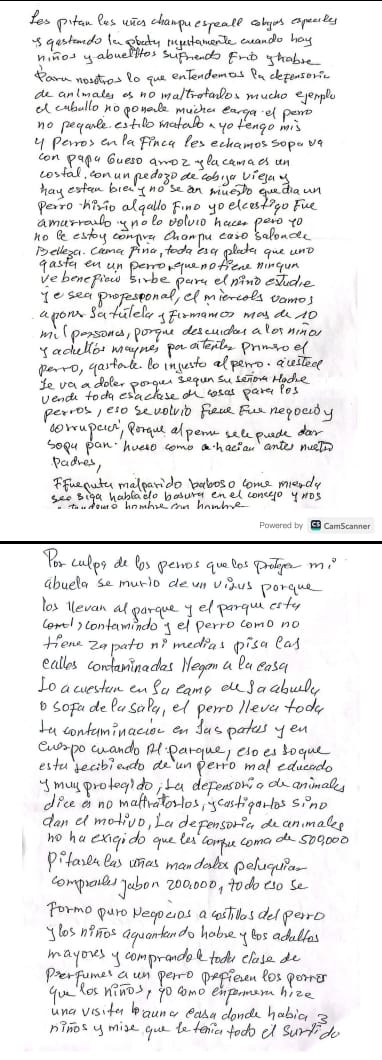 Les pitan las uñas champu espeall cobijas especiales
y gastando la plata injustamente cuando hay
niños y abuelitos sufriendo Frio y habre
Para nosotros lo que entendemos la defensoria
de animales es no maltrotarlos mucho ejemplo
el caballo no ponerle mucha carga el perro
no pegarle estilo matarlo, yo tengo mis
4 Perros en la Finca les echamos sopa va
con papa Gueso arroz y la cama es un
costal, con un pedazo de cobija vieja y
hay estan bien y no se an muerto que dia un
perro hirio al gallo Fino yo el castigo Fue
amarrarlo y no lo volvio hacer pero yo
no le estoy compra champu caso salon de
Belleza. cama Fina, toda esa plata que uno
gasta en un perro, que no tiene ningun
ve beneficio sirbe para el niño estudie
y e sea profesponal, el miercols vamos
aponer la tutela y firmamos mas de 10
mil personas, porque descuidan a los niños
y a bullitos mayores por atender primero el
perro, gastarle lo injusto al perro. a usted
le va a doler porque segun su señora Madre
vende toda esa clase de cosas para los
perros, eso se volvio Fue negocio y
corrupcion, Porque al perro se le puede dar
Sopa pan. hueso como a hacian antes nuestro
Padres,
FFueputa malparido baboso come mierda
see siga hablado basura en el concejo y nos
hombre con hombre
Powered by CS CamScanner
Por culpa de los perros que los protejen mi
abuela se murio de un virus porque
los llevan al parque y el parque esta
contamindo y el perro como no
tiene zapato ni medias pisa las
calles contaminadas llegan a la casa
lo acuestan en la cama de la abuela
o sofa de la sala, el perro lleva toda
la contaminacion en las patas y en
cuerpo cuando al parque, eso es lo que
esta recibiendo de un perro mal educado
y muy protegido, La defensoria de animales
dice es no maltratarlos, y castigarlos sino
dan el motivo, La defensoria de animales
no ha exigido que les compre coma de 500,000
Pitarle las uñas mandalos peluquiar
comprarles jabon 200.000, todo eso se
Formo puro Negocios a costillas del perro
y los niños aguantando habre y los adultos
mayores y comprandole toda clase de
Perfumes a un perro prefieren los perros
que los niños, yo como enfermera hize
una visita a una casa donde habia 3
niños y mire que le tenia todo el surtido